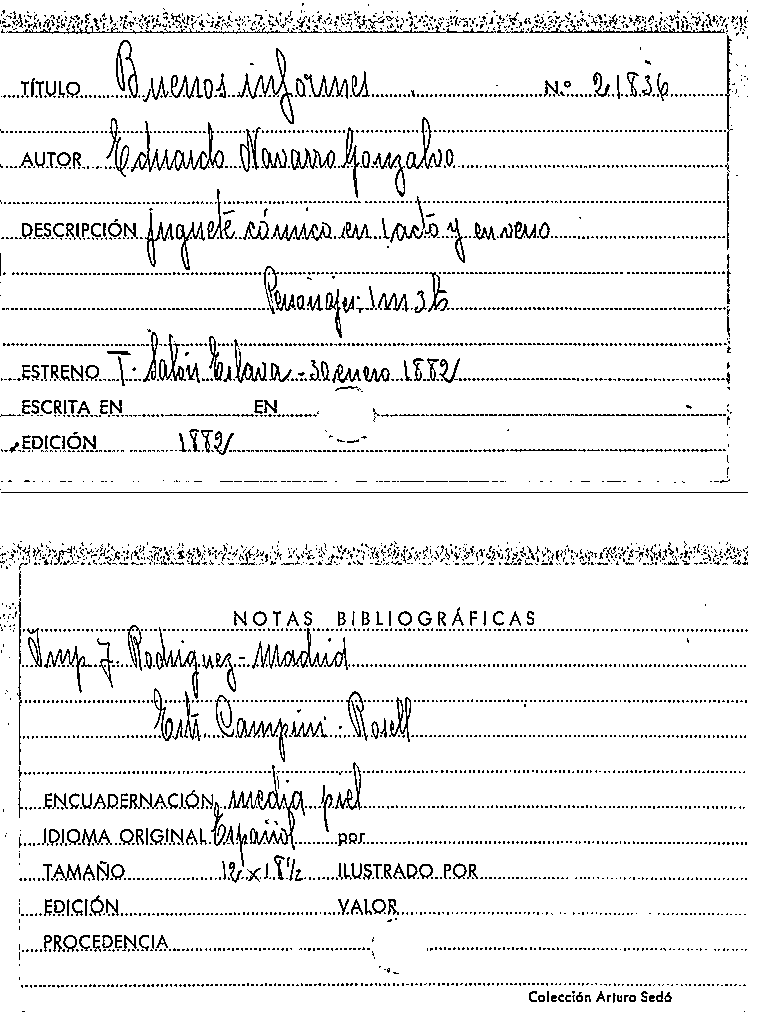 TÍTULO Buenos informes N.º 21836
AUTOR Eduardo Navarro Gonzalvo
DESCRIPCIÓN juguete cómico en 1 acto y en verso
Personajes: 1 m 3 h
ESTRENO T. Salón Eslava - 30 enero 1882
ESCRITA EN EN
EDICIÓN 1882
NOTAS BIBLIOGRÁFICAS
Imp J. Rodriguez - Madrid
Campini - Rosell
ENCUADERNACIÓN media piel
IDIOMA ORIGINAL Español por
TAMAÑO 12 x 18 1/2 ILUSTRADO POR
EDICIÓN VALOR
PROCEDENCIA
Colección Arturo Sedó